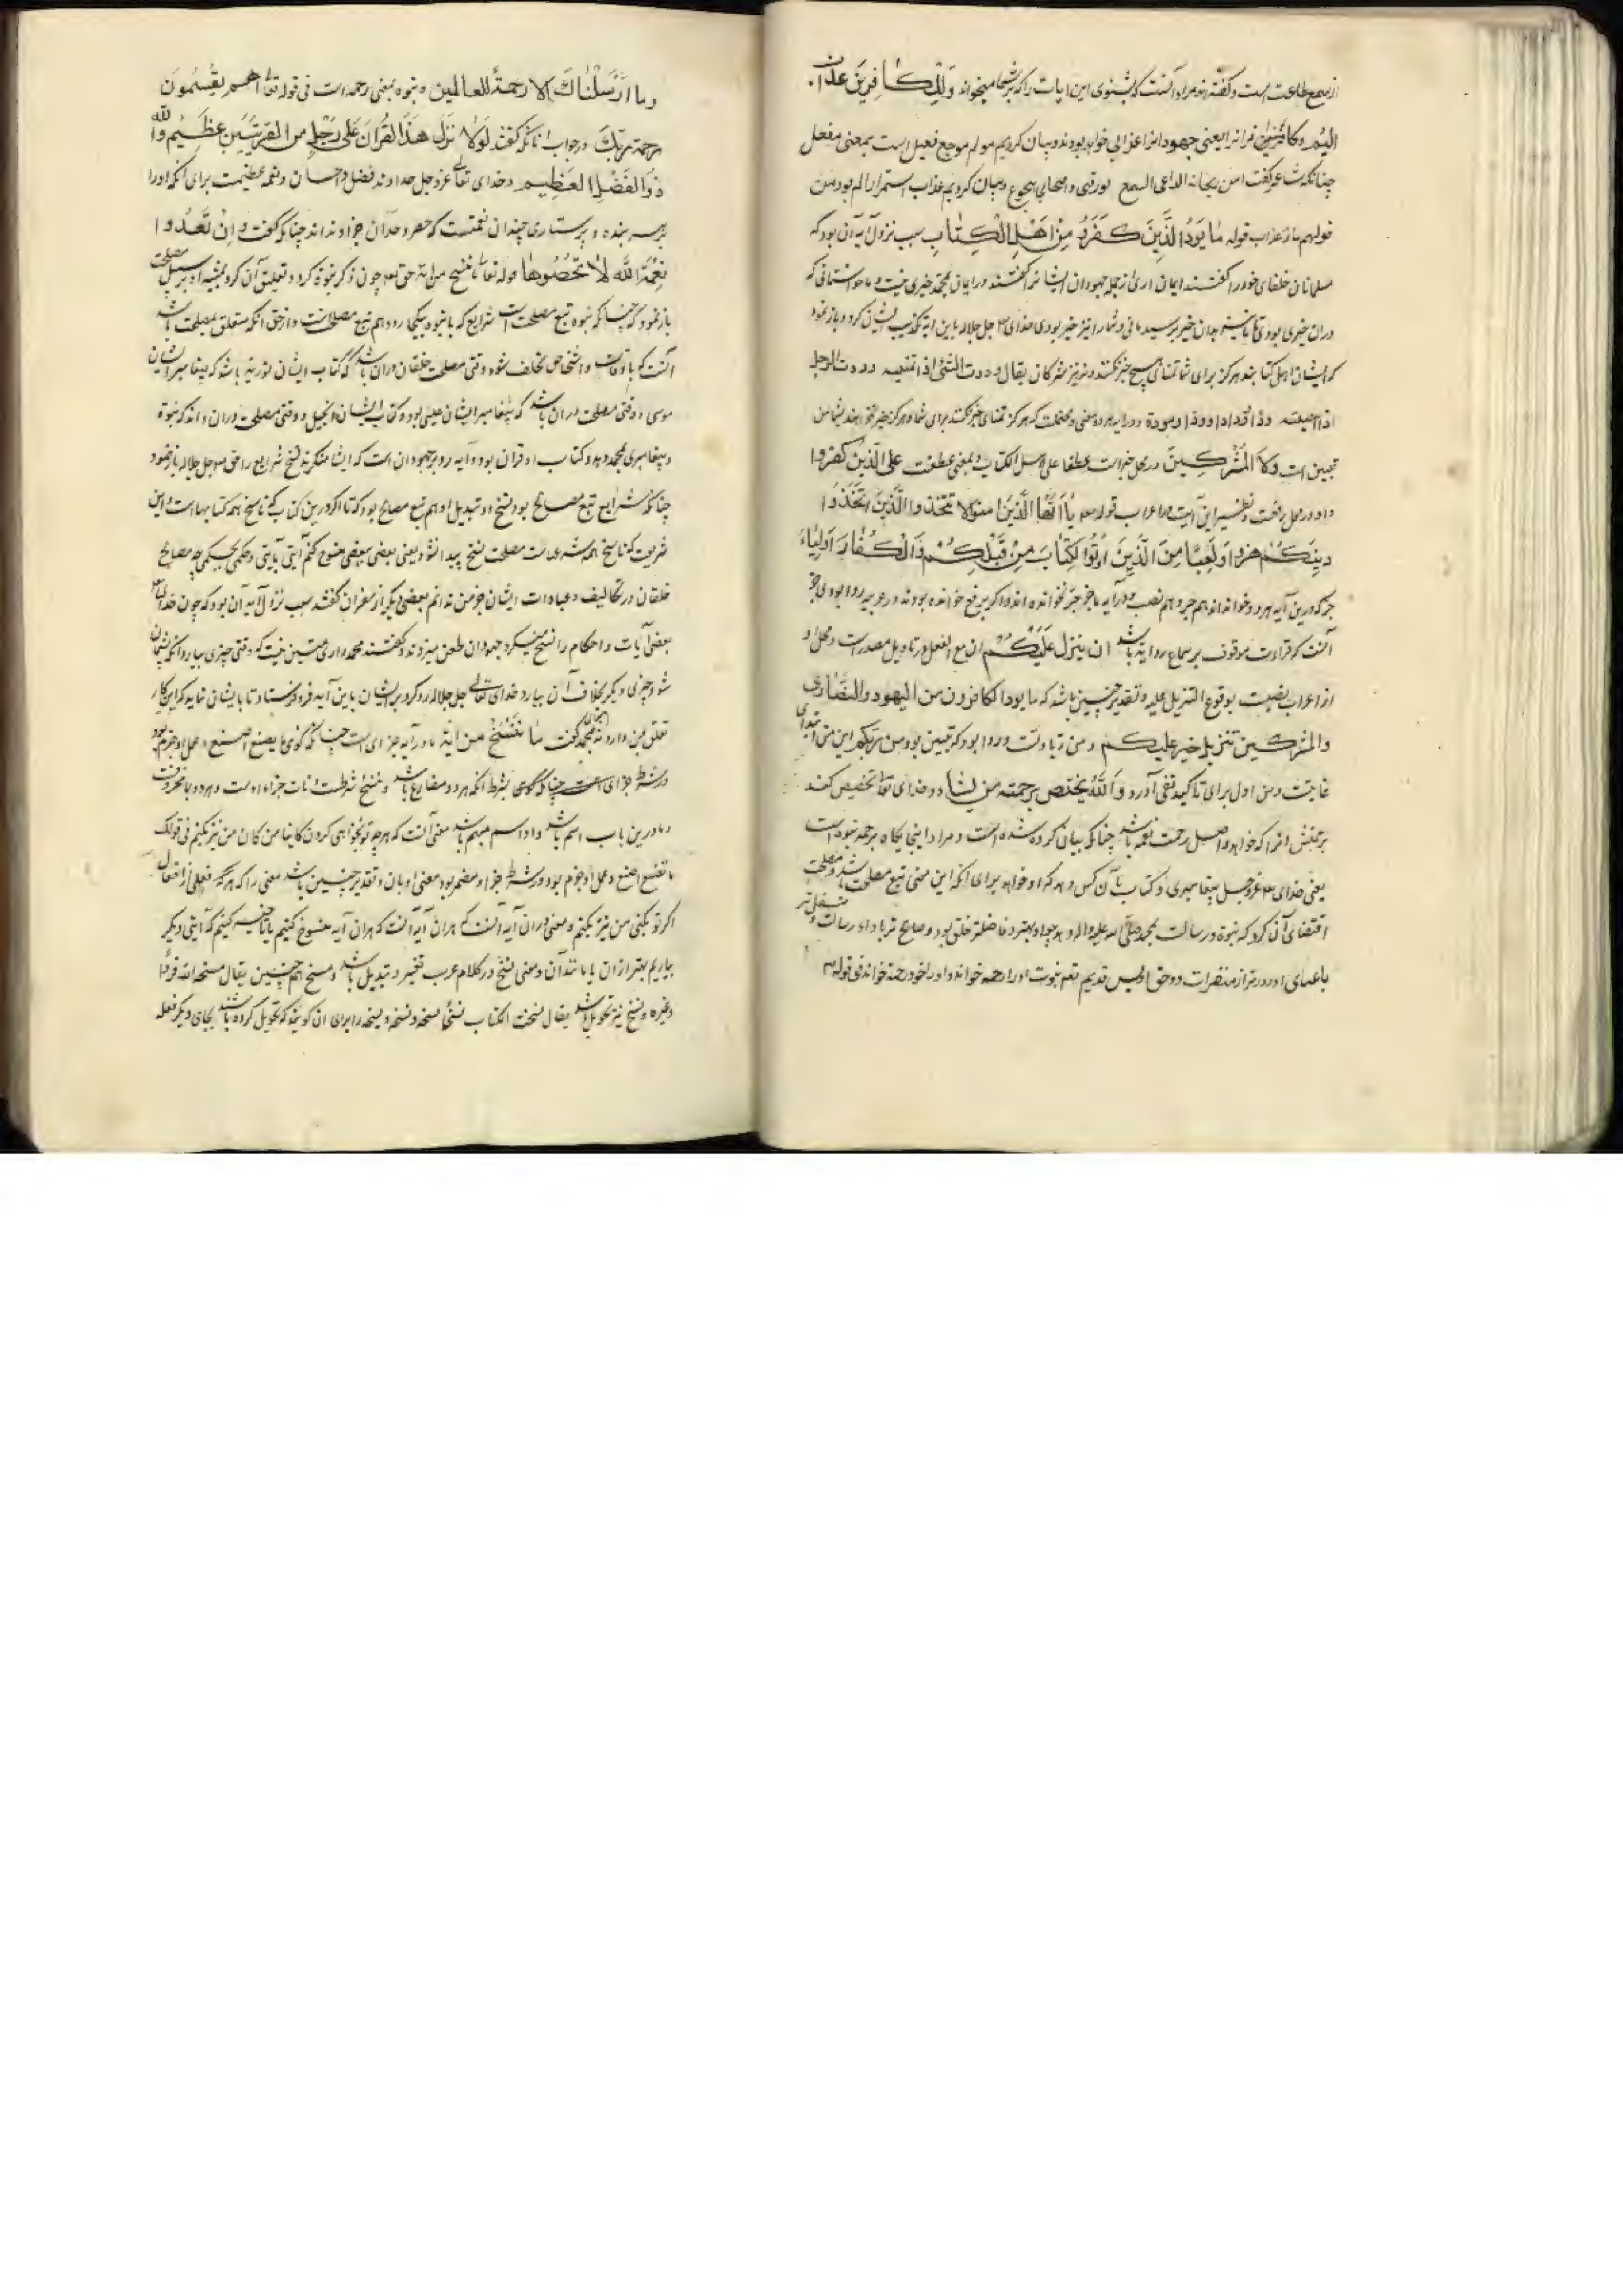 از سمع طاعت است و گفته‌اند مراد آنست که بشنوی این ایات را که بر شما میخواند وَلِلكافِرينَ عذاب
اليم و کافران را یعنی جهودان را عذابی خواهد بودند و بیان کردیم مولم موجع فعیل است بمعنی مفعل
چنانکه شاعر گفت امن ریحانة الداعی السمیع یورقنی و اصحابی هجوع و بیان کردیم عذاب استمرار الم بود من
قولهم قوله ما يَودُّ الَّذينَ كَفَرُوا مِنْ اَهْلِ الْكِتابِ سبب نزول آیه آن بود که
مسلمانان حلفای خود را گفتند ایمان آری از جمله جهودان ایشان گفتند در ایمان بمحمد خیری نیست و ما خواستمانی که
دران خیری بودی تا بدان خیر برسیدمانی و شما را نیز خیر بودی خدای جل جلاله باین آیه تکذیب ایشان کرد و باز نمود
که ایشان اهل کتابند هرگز برای شما تمنای هیچ خیر نکنند و نیز مشرکان یقال وددت الشئ اذا تمنیته و وددت الرجل
اذا احببته ودا و ودادا و مودة و در آیه هر دو معنی محتملست که هرگز تمنای خیر نکنند برای شما و هرگز خیر نخواهند بشما من
تبیین است ولا المُشْرِكينَ در محل جر است عطفا علی اهل الکتاب و بمعنی عطفست علی الَّذينَ كَفَرُوا
و او در محل رفعت و نظیر این آیت در اعراب قوله يا اَيُّهَا الَّذينَ امنوا لا تتخذوا الَّذينَ اتَّخَذُوا
دينَكُمْ هُزُوًا وَلَعِبًا مِنَ الَّذينَ اُوتُوا الكِتابَ مِنْ قَبْلِكُمْ وَالْكُفّارَ اَولياءَ
جز که درین آیه هر دو خوانده‌اند هم جر و هم نصب و در آیه ما جز جر نخوانده‌اند و اگر برفع خوانده بودند در عربیه روا بودی جز
آنست که قراءت موقوف بر سماع روایة باشد ان ينزل عَلَيْكُمْ ان مع الفعل در تاویل مصدر است و محل او
از اعراب نصبست بوقوع التنزیل علیه و تقدیر چنین باشد که ما یود الکافرون من اليهود والنصارى
والمشركين تنزيل خير عليكم و من زیادتست و روا بود که تبیین بود من ربكم این من ابتدای
غایتست و من اول برای تاکید نفی آورد وَاللّهُ يختص برحمته من يشاء و خدای تعالی تخصیص کند
برحمتش انرا که خواهد و اصل رحمت نعمه باشد چنانکه بیانی کرده شده است و مراد اینجایگاه برحمه نبوه است
یعنی خدای عز و جل پیغامبری و کتاب بآن کس دهد که او خواهد برای آنکه این معنی تبع مصلحت باشد و مصلحت
اقتضای آن کرد که نبوة و رسالت بمحمد صلى الله عليه واله دهد چه او بهتر و فاضلتر خلق بود و صالح تر باداء رسالت و
با عبای او و دورتر از منفرات و حق قدیم نبوت او را رحمه خواند و او را خود رحمة خواند فی قوله
وما اَرْسَلْناكَ اِلا رحمةً للعالمين و نبوه بمعنی رحمه است فی قوله تعالی اهم يقسمون
رحمة ربك در جواب آنانکه گفتند لَوْلا نزل هذا القرآن عَلى رَجُلٍ من القريتين عظيم والله
ذو الفضل العظيم و خدای تعالی عز و جل خداوند فضل و احسان و نعمه عظیمست برای آنکه او را
بر هر بنده و پرستاری چندان نعمتست که حصر و حد آن جز او نداند چنانکه گفت وَاِنْ تَعُدّوا
نِعْمَةَ اللّهِ لا تُحْصُوها قوله تعالی ما ننسخ من اية حق تعالی چون ذکر نبوة کرد و تعلیق آن کرد بمشیه او بر سبیل مصلحت
باز نمود که چنانکه نبوه تبع مصلحت است شرایع که با نبوه بیکجا رود هم تبع مصلحتست و از حق آنکه متعلق بمصلحت باشد
آنست که باوقات و اشخاص مختلف شود وقتی مصلحت خلقان دران باشد که کتاب ایشان توریة باشد که پیغامبر ایشان
موسی و وقتی مصلحت دران باشد که پیغامبر ایشان عیسی بود و کتاب ایشان انجیل و وقتی مصلحت دران داند که نبوة
و پیغامبری بمحمد دهد و کتاب او قران بود و آیه رد بر جهودان است که ایشان منکرند نسخ شرایع را حق جل جلاله باز نمود
چنانکه شرایع تبع مصالح بود نسخ او و تبدیل او هم تبع مصالح بود که تا اگر درین کتاب که ناسخ همه کتابهاست و این
شریعت که ناسخ همه شرعهاست مصلحت نسخ پیدا شود یعنی بعضی ببعضی منسوخ کنم آیتی بآیتی و حکمی بحکمی چه مصالح
خلقان در تکالیف و عبادات ایشان جز من نداند بعضی دیگر از مفسران گفتند سبب نزول آیه آن بود که چون خدای تعالی
بعضی آیات و احکام را نسخ میکرد جهودان طعن میزدند و گفتند محمد را رای متین نیست که وقتی چیزی بیارد آنگه پشیمان
شود چیزی دیگر بخلاف آن بیارد خدای تعالی جل جلاله رد کرد بر ایشان باین آیه فرو فرستاد تا بایشان نماید که این کار
تعلق بمن دارد نه بمحمد گفت ما ننسخ من اية ما در آیه جزای است چنانکه گوئی ما یصنع اصنع و عمل او جزم بود
در شرط و جزای است چنانکه گوئی بشرط آنکه هر دو مضارع باشد و ننسخ شرطست و نات جزاء اوست و هر دو مجزومست
و ما درین باب اسم باشد و او اسم مبهم باشد معنی آنست که هر چه تو بخواهی کردن کاینا من کان من نیز بکنم فی قولک
ما تصنع اصنع و عمل او جزم بود در شرط و جزا و مضمر بود معنی او بان و تقدیر چنین باشد معنی را که هر گه فعلی از افعال
اگر تو بکنی من نیز بکنم و معنی دران آیه آنست که هران آیه آنست که هران آیه منسوخ کنیم یا تاخیر کنیم که آیتی دیگر
بیاریم بهتر از ان یا مانند آن و معنی نسخ در کلام عرب تغییر و تبدیل باشد و مسخ هم چنین یقال مسخه الله قردا
و غیره و نسخ نیز تحویل باشد یقال نسخت الکتاب نسخا نسخه و نسخه و نسخه را برای آن گویند که تحویل کرده باشند بجای دیگر فعله